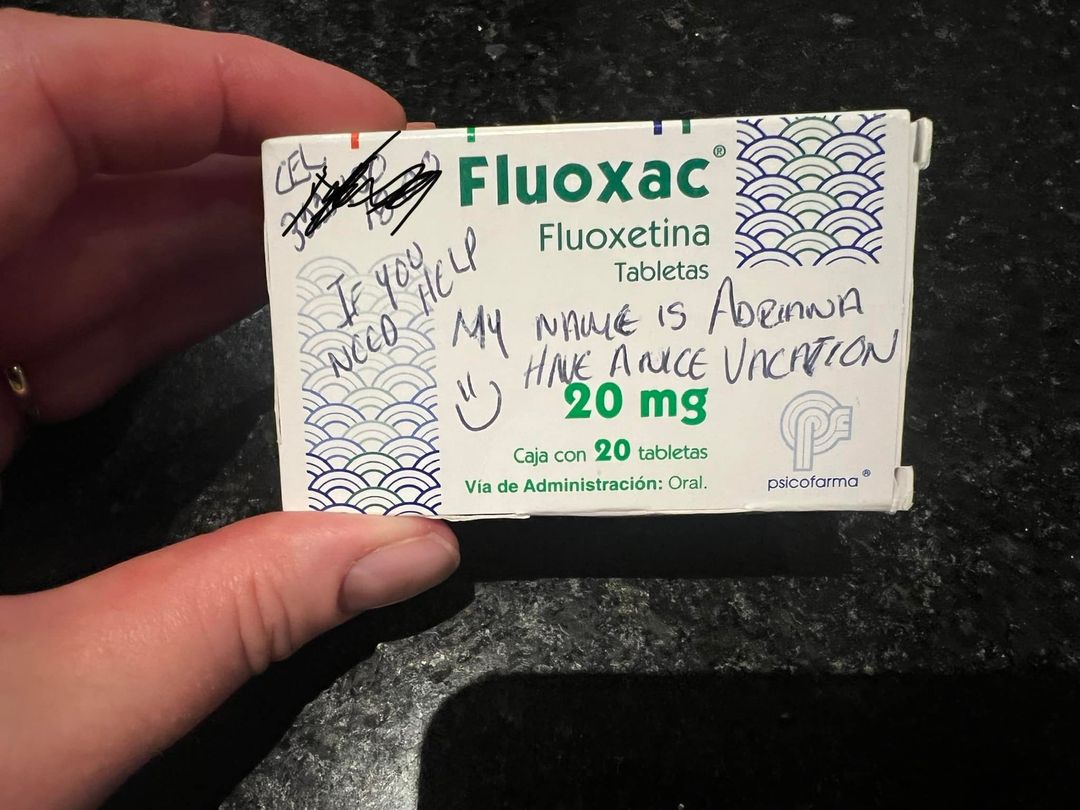 CEL
Fluoxac®
Fluoxetina
Tabletas
IF YOU
NEED HELP
MY NAME IS ADRIANA
HAVE A NICE VACATION
20 mg
Caja con 20 tabletas
Vía de Administración: Oral.
psicofarma®